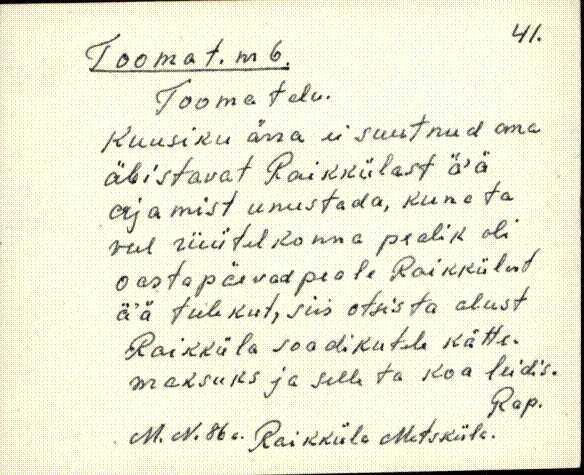 41.
Tooma t. m 6.
Tooma talu.
Kuusiku ärra ei suutnud oma
äbistavat Raikkülast ä'ä
ajamist unustada, kuna ta
veel rüütelkonna pealik oli
aastapäevad peale Raikkülast
ä'ä tulekut, siis otsis ta alust
Raikküla soadikutele kätte-
maksuks ja selle ta koa leidis.
Rap.
M. N. 86 a. Raikküla Metsküla.